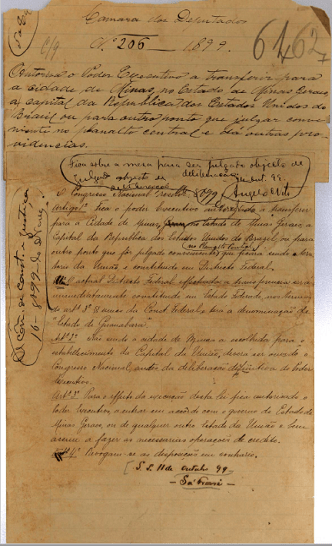 Camara dos Deputados
Nº 206 — 1899.
6162
Autorisa o Poder Executivo a transferir para
a cidade de Minas, no Estado de Minas Geraes
a Capital da Republica dos Estados Unidos do
Brasil ou para outro ponto que julgar conve-
niente no planalto central e dá outras pro-
videncias.
Fica sobre a mesa para ser julgado objecto de
deliberação
O Congresso Nacional decreta:
Artigo 1º Fica o poder Executivo autorisado a transferir
para a Cidade de Minas, a
Capital da Republica dos Estados Unidos do Brazil, ou para
outro ponto que fôr julgado conveniente
da União e constituido em Districto Federal.
O actual Districto Federal
immediatamente constituido em Estado
do artº 3º da Const. Federal, com a denominação de
"Estado de Guanabara".
Artº 2º Não sendo a cidade de Minas a escolhida para o
estabelecimento da Capital da União, deverá ser ouvido o
Congresso Nacional, antes da deliberação definitiva do poder
Executivo.
Artº 3º Para o effeito da execução desta lei fica autorisado o
poder Executivo a entrar em accordo com o governo do Estado de
Minas Geraes, ou de qualquer outro Estado da União e bem
assim a fazer as necessarias operações de credito.
Artº 4º Revogam-se as disposições em contrario.
S. S. 11 de outubro 99
Sá Freire